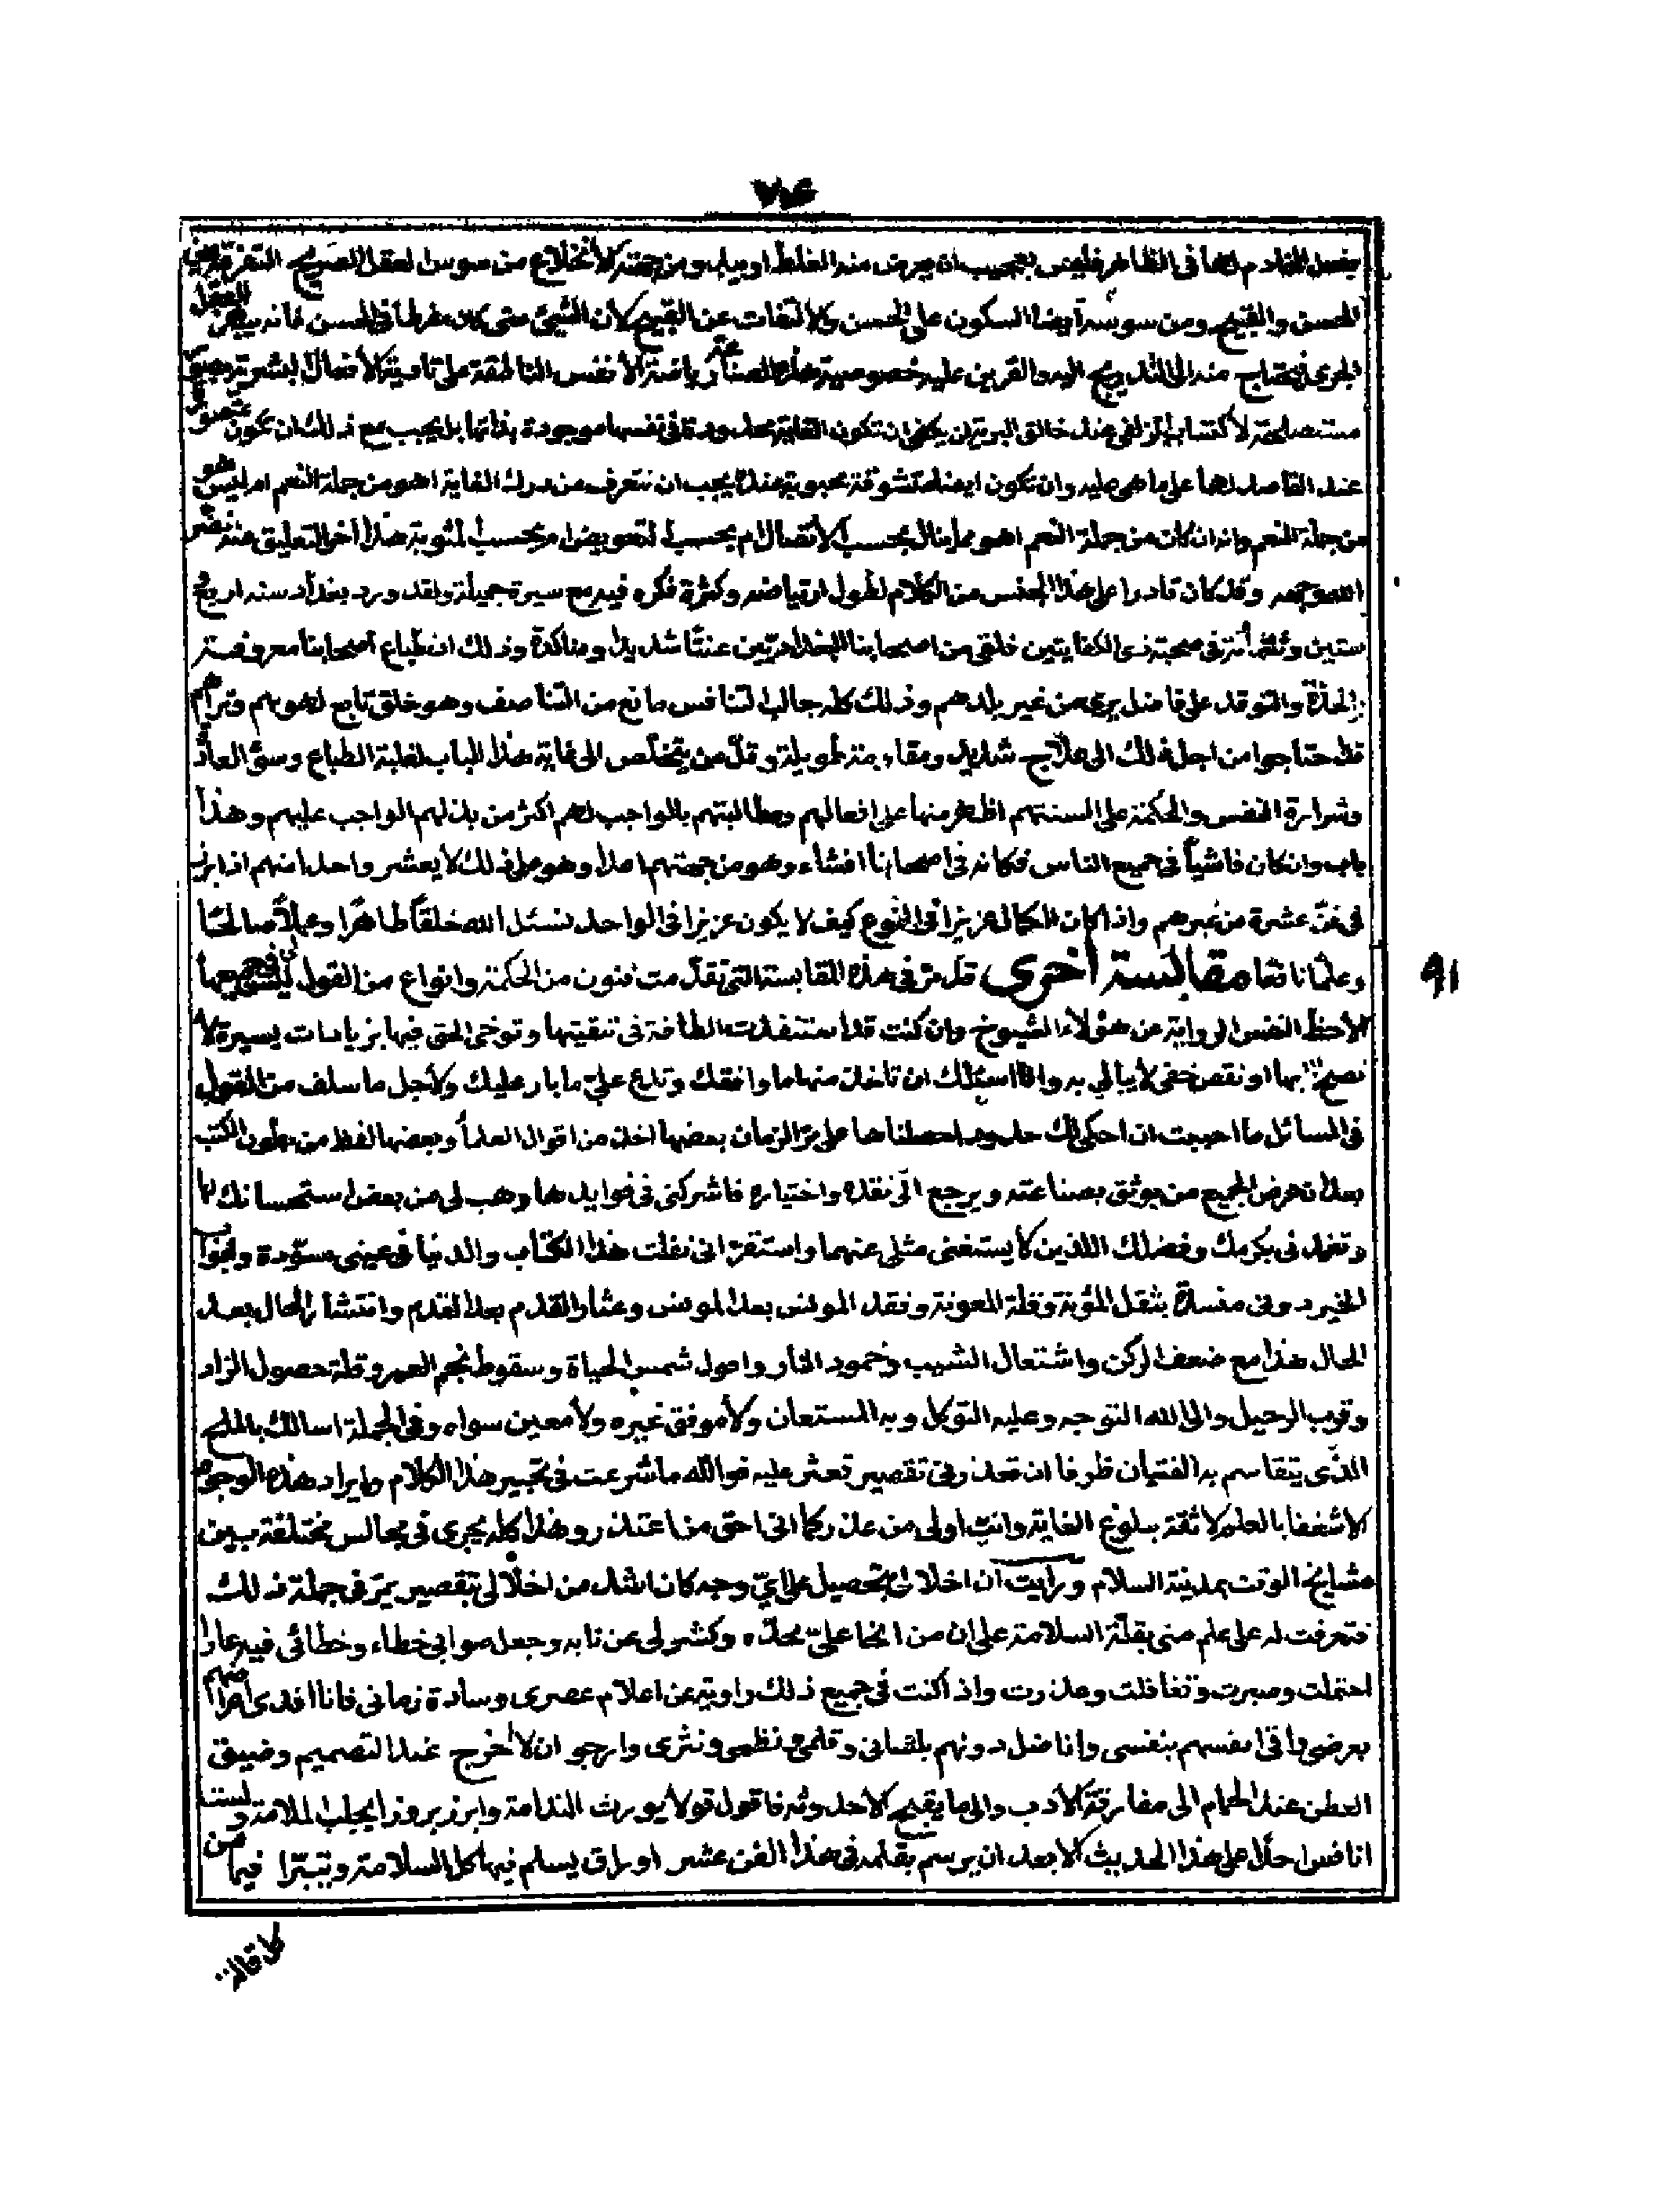 ٧٤
يفعل الخادم لها فى الظاهر فليس بعجيب ان يعرض منه الغلط او يباب ومن جهته كالأنخلاع من سوس العقل الصريح التفرقة بين
الحسن والقبيح ومن سوسه أيضا السكون على الحسن والالتفات عن القبيح لأن الشيئ متى كان مفرطا فى الحسن فانه يبهر العقل
فيحتاج منه الى التدريج اليه والقرين عليه خصوصية هذه الصناعة رياضة الأنفس الناطقة على تادية الأفعال البشرية
مستصلحة لأكتساب الزلفى عند خالق البرية لن يكفى ان تكون الغاية محدودة فى نفسها موجودة بذاتها بل يجب مع ذلك ان تكون
عند القاصد لها على ما هى عليه وان تكون ايضا متشوقة محبوبة عنده يجب ان نتعرف من مدرك الغاية اهو من جملة النعم ام ليس هو
من جملة النعم وانه ان كان من جملة النعم اهو مما ينال بحسب الأتصال ام بحسب التعويض ام بحسب المثوبة هذا آخر التعليق عنه نضر
الله وجهه وقد كان قادرا على هذا الجنس من الكلام لطول ارتياضه وكثرة فكره فيه مع سيرة جميلة ولقد ورد بغداد سنة اربع
ستين وثلثمأئة فى صحبة ذى الكفايتين فلقى من اصحابنا البغداديين عنتًا شديدا ومناكدة وذلك ان طباع اصحابنا معروفة
بالحدّة والتوقد على فاضل يرى من غير بلدهم وذلك كله جالب التنافس مانع من التناصف وهو خلق تابع لهوائهم
قد احتاجوا من اجل ذلك الى علاج شديد ومقاومة طويلة وقلّ من يتخلّص الى غاية هذا الباب لغلبة الطباع وسوء العادة
وشرارة النفس والحكمة على السنتهم اظهر منها على افعالهم ومطالبتهم بالواجب لهم اكثر من بذلهم الواجب عليهم وهذا
باب وان كان فاشياً فى جميع الناس فكانه فى اصحابنا افشاء وهو من جهتهم اعدا وهو على ذلك لا يعشر واحدا منهم اذا برز
فى فنّ عشرة من غيرهم واذا كان الكمال عزيزاً فى النوع كيف لا يكون عزيزا فى الواحد نسئل الله خلقاً طاهرًا وعملاً صالحًا
وعلمًا نافعا مقابسة أخرى قد مرّ فى هذه المقابسة التى تقدّمت فنون من الحكمة وانواع من القول ليس لى فى جميعها
الاحظّ النفس الرواية عن هؤلاء الشيوخ وان كنت قد استنفدت الطاقة فى تنقيتها وتوخى الحق فيها بزيادات يسيرة لا
تصح بها او نقص خفى لا يبالى به وانا اسئلك ان تاخذ منها ما وافقك وتدع علىّ ما بار عليك ولأجل ما سلف من القول
فى المسائل ما احببت ان احكى لك حدود احصلناها على مرّ الزمان بعضها اخذ من اقوال العلمأ وبعضها لقط من بطون الكتب
بعد ان عرض الجميع من يوثق بصناعته ويرجع الى نقده واختياره فاشركنى فى فوايدها وهب لى من بعض استحسانك لها
وتغمدنى بكرمك وفضلك اللذين لا يستغنى مثلى عنهما واستقرّ انى نقلت هذا الكتاب والدنيا فى عينى مسوّدة وابواب
الخير دونى منسدّة بثقل المؤنة وقلة المعونة وفقد المونس بعد المونس وعثار القدم بعد القدم وانتشار الحال بعد
الحال هذا مع ضعف الركن واشتعال الشيب وخمود النار وافول شمس الحياة وسقوط نجم العمر وقلة حصول الزاد
وقرب الرحيل والى الله التوجه وعليه التوكل وبه المستعان ولا موفق غيره ولا معين سواه وفى الجملة اسالك بالملح
الذّى يتقاسم به الفتيان ظرفا ان تعذرنى تقصير تعثر عليه فوالله ما شرعت فى تحبير هذا الكلام وايراد هذه الوجوه
الا شغفا بالعلم لا ثقة ببلوغ الغاية وانت اولى من عذر كما انى احق من اعتذر وهذا كله يجرى فى مجالس مختلفة بين
مشايخ الوقت بمدينة السلام ورأيت ان اخلالى بتحصيل على ايّ وجه كان اشد من اخلالى بتقصير يمرّ فى جملة ذلك
فتعرضت له على علم منى بقلّة السلامة على ان من انحا علىّ بحدّه وكشر لى عن نابه وجعل صوابى خطاء وخطائى فيه عارا
احتملت وصبرت وتغافلت وعذرت واذ اكنت فى جميع ذلك راوية عن اعلام عصرى وسادة زمانى فانا افدى اعراضهم
بعرضى واقى انفسهم بنفسى واناضل دونهم بلسانى وقلمى ونظمى ونثرى وارجو ان لا أخرج عند التصميم وضيق
العطن عند الحمام الى مفارقة الأدب والى ما يقبح الأحدوثة فاقول قولا يورث الندامة وابرز بروزا يجلب الملامة ولست
انافس احدًا على هذا الحديث الا بعد ان يرسم بقلمه فى هذا الفن عشر اوراق يسلم فيها كل السلامة ويتبرّا فيها من
٩١
كل قالة